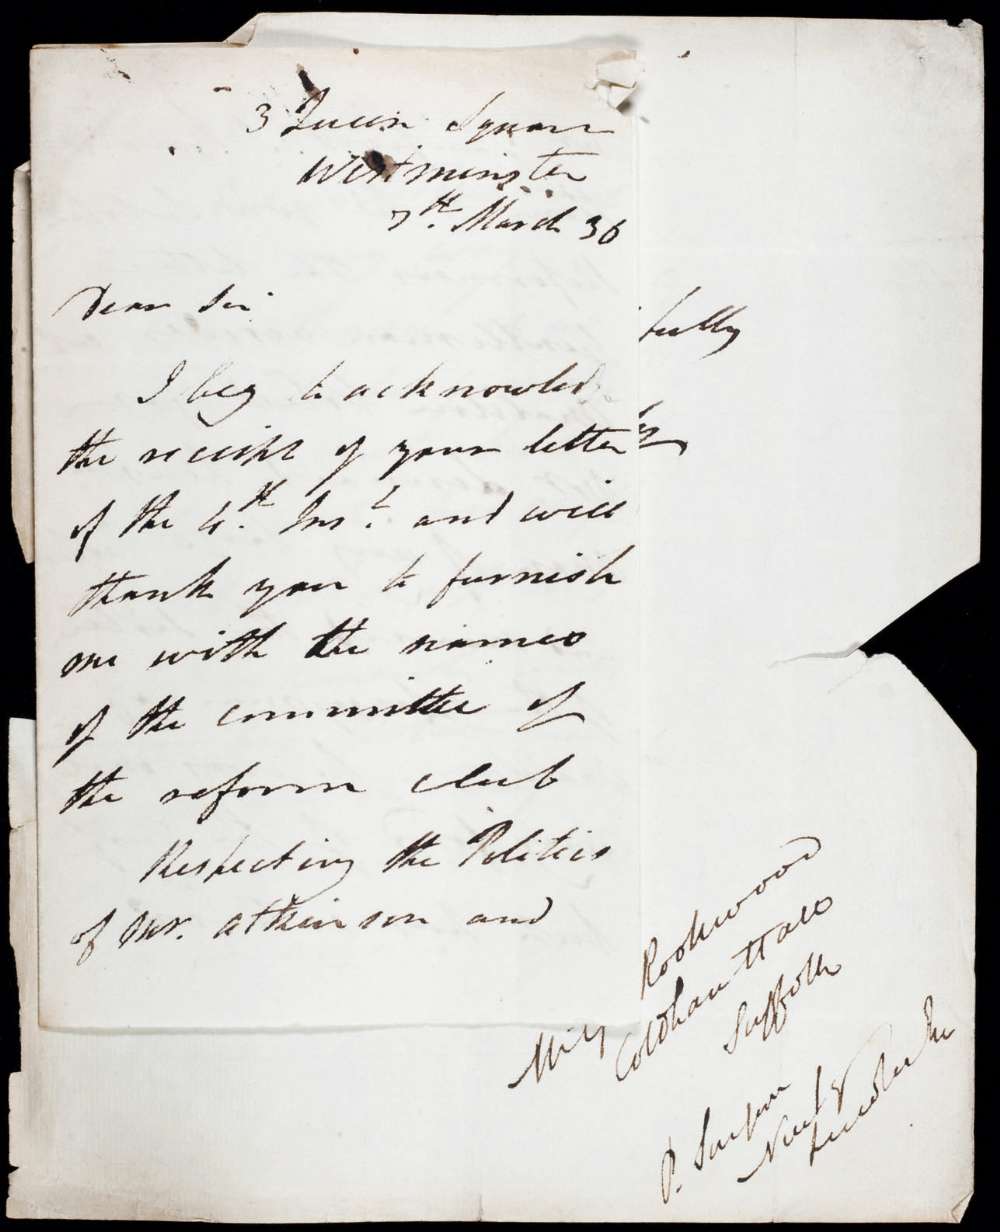 3 Queen Square
Westminster
7th. March 36
Dear Sir
I beg to acknowled
the receipt of your letter
of the 4th. Inst. and will
thank you to furnish
me with the names
of the committee of
the reform club
Respecting the Politics
of Mr. Atkinson and
fully
Rookwood
Coldham Hall
Suffolk
P.